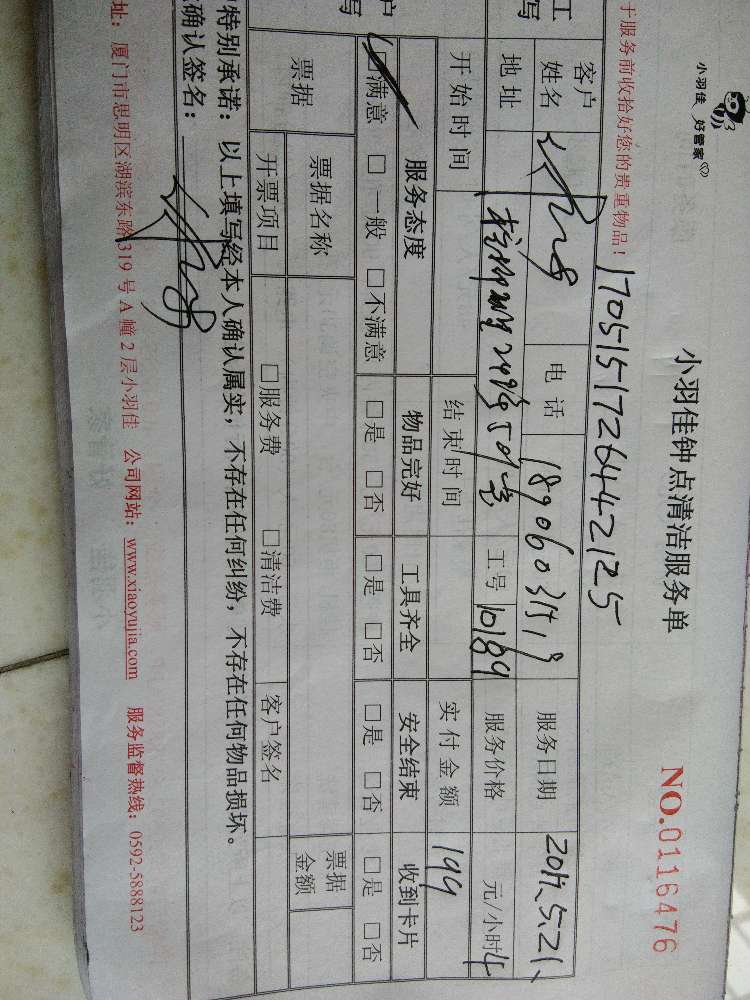 小羽佳 好管家
小羽佳钟点清洁服务单
NO.0116476
于服务前收拾好您的贵重物品！
17051517264421 25
工
写
客户
姓名
电话
服务日期
2017.5.21.
地址
工号
10189
服务价格
元/小时
4
开始时间
结束时间
实付金额
199
户
写
服务态度
物品完好
工具齐全
安全结束
收到卡片
满意
□ 一般
□ 不满意
□ 是 □ 否
□ 是 □ 否
□ 是 □ 否
□ 是 □ 否
票据
票据名称
票据
金额
开票项目
□服务费
□清洁费
客户签名
特别承诺：以上填写经本人确认属实，不存在任何纠纷，不存在任何物品损坏。
确认签名：
址：厦门市思明区湖滨东路319号A幢2层小羽佳 公司网站：www.xiaoyujia.com 服务监督热线：0592-5888123